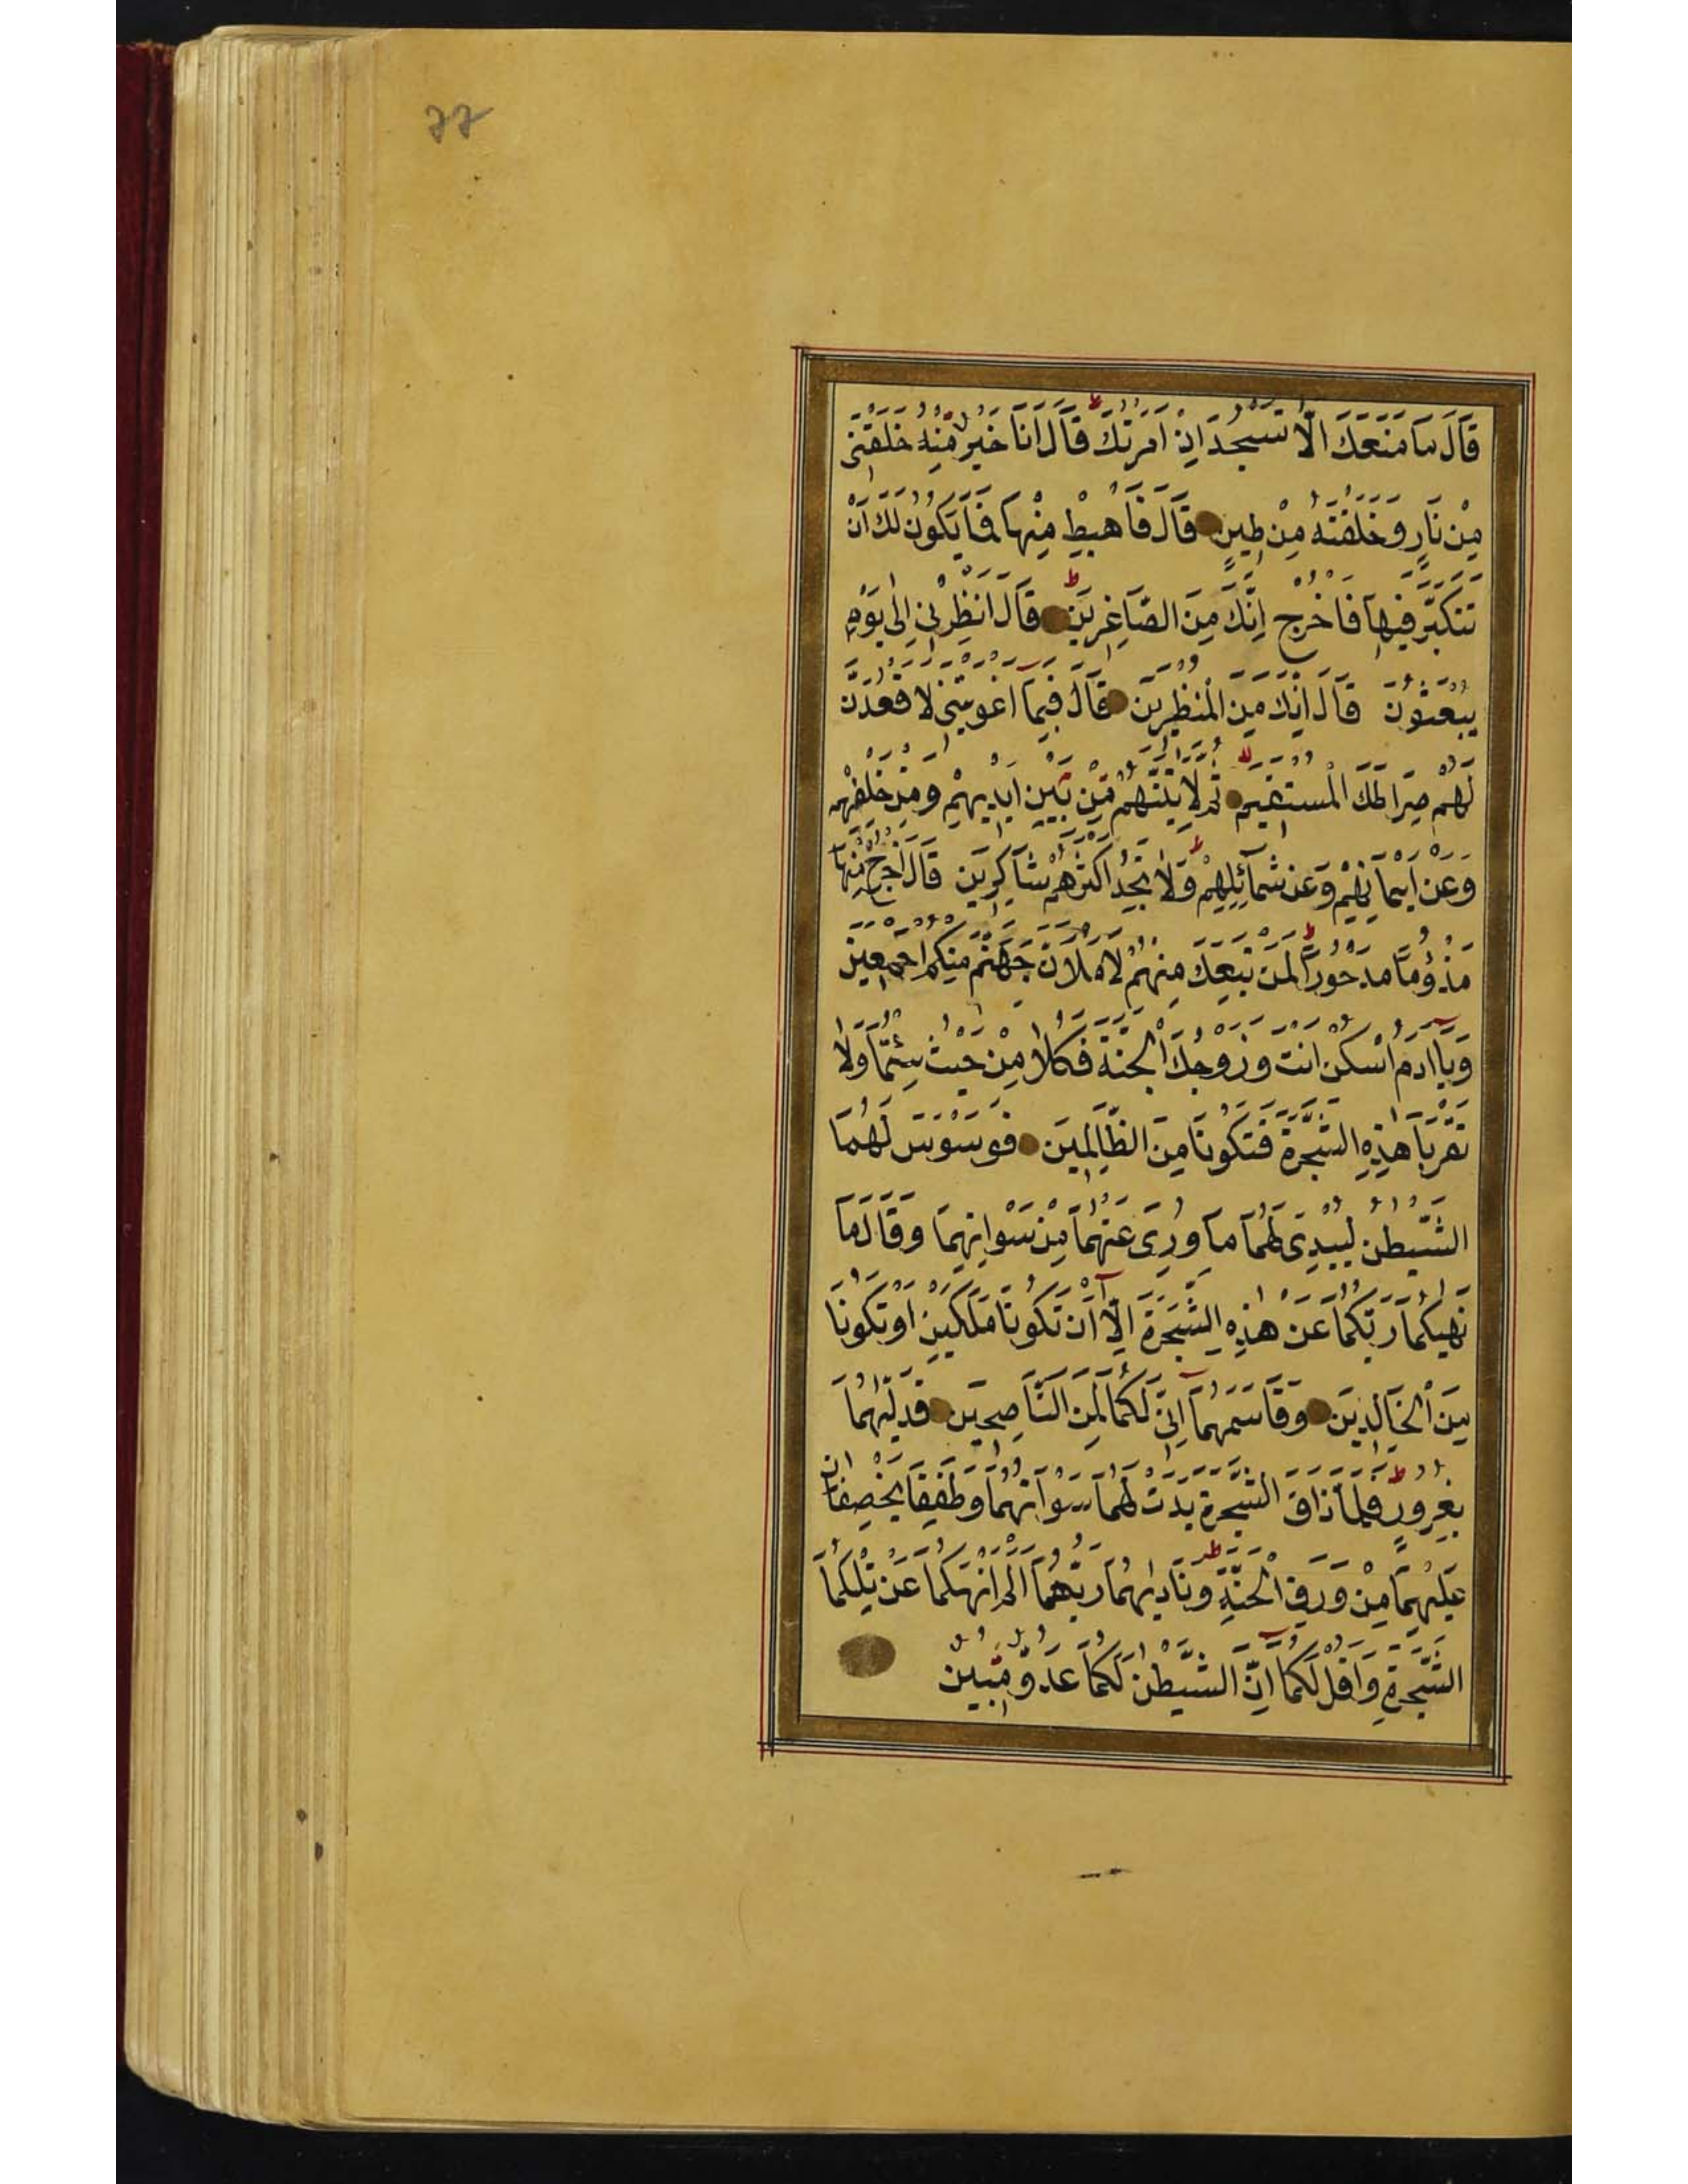 77
قَالَ مَا مَنَعَكَ اَلَّا تَسْجُدَ اِذْ اَمَرْتُكَ قَالَ اَنَا خَيْرٌ مِّنْهُ خَلَقْتَنِى
مِنْ نَارٍ وَخَلَقْتَهُ مِنْ طِينٍ قَالَ فَاهْبِطْ مِنْهَا فَمَا يَكُونُ لَكَ اَنْ
تَتَكَبَّرَ فِيهَا فَاخْرُجْ اِنَّكَ مِنَ الصَّاغِرِينَ قَالَ انْظِرْنِى اِلٰى يَوْمِ
يُبْعَثُونَ قَالَ اِنَّكَ مِنَ الْمُنْظَرِينَ قَالَ فَبِمَا اَغْوَيْتَنِى لَاَقْعُدَنَّ
لَهُمْ صِرَاطَكَ الْمُسْتَقِيمَ ثُمَّ لَاٰتِيَنَّهُمْ مِّنْ بَيْنِ اَيْدِيهِمْ وَمِنْ خَلْفِهِمْ
وَعَنْ اَيْمَانِهِمْ وَعَنْ شَمَآئِلِهِمْ وَلَا تَجِدُ اَكْثَرَهُمْ شَاكِرِينَ قَالَ اخْرُجْ مِنْهَا
مَذْؤُمًا مَدْحُورًا لَمَنْ تَبِعَكَ مِنْهُمْ لَاَمْلَاَنَّ جَهَنَّمَ مِنْكُمْ اَجْمَعِينَ
وَيَآ اٰدَمُ اسْكُنْ اَنْتَ وَزَوْجُكَ الْجَنَّةَ فَكُلَا مِنْ حَيْثُ شِئْتُمَا وَلَا
تَقْرَبَا هٰذِهِ الشَّجَرَةَ فَتَكُونَا مِنَ الظَّالِمِينَ فَوَسْوَسَ لَهُمَا
الشَّيْطٰنُ لِيُبْدِىَ لَهُمَا مَا وُرِىَ عَنْهُمَا مِنْ سَوْاٰتِهِمَا وَقَالَ مَا
نَهٰيكُمَا رَبُّكُمَا عَنْ هٰذِهِ الشَّجَرَةِ اِلَّآ اَنْ تَكُونَا مَلَكَيْنِ اَوْ تَكُونَا
مِنَ الْخَالِدِينَ وَقَاسَمَهُمَآ اِنِّى لَكُمَا لَمِنَ النَّاصِحِينَ فَدَلّٰيهُمَا
بِغُرُورٍ فَلَمَّا ذَاقَا الشَّجَرَةَ بَدَتْ لَهُمَا سَوْاٰتُهُمَا وَطَفِقَا يَخْصِفَانِ
عَلَيْهِمَا مِنْ وَرَقِ الْجَنَّةِ وَنَادٰيهُمَا رَبُّهُمَآ اَلَمْ اَنْهَكُمَا عَنْ تِلْكُمَا
الشَّجَرَةِ وَاَقُلْ لَكُمَآ اِنَّ الشَّيْطٰنَ لَكُمَا عَدُوٌّ مُّبِينٌ